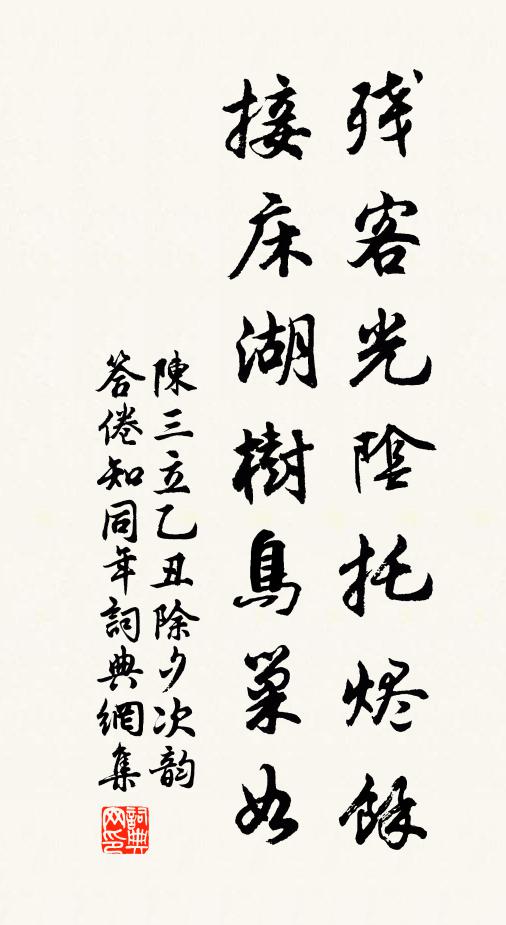 残客光陰托烬餘
接床湖樹鳥巢如
陳三立乙丑除夕次韵
答倦知同年詞典網集
詞典網印